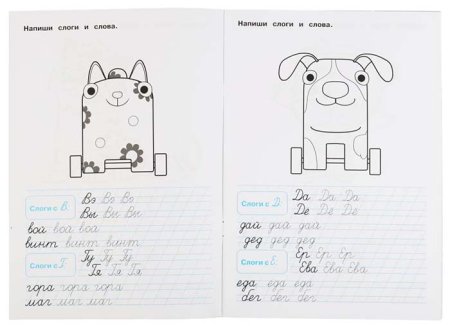 Напиши слоги и слова.
Слоги с В: Вэ Вэ Вэ
Вы Вы Вы
вой вой вой
винт винт винт
Слоги с Г: Гу Гу Гу
Гя Гя Гя
гора гора гора
маг маг маг
Напиши слоги и слова.
Слоги с Д: Да Да Да
Де Де Де
дай дай дай
дед дед дед
Слоги с Е: Ер Ер Ер
Ева Ева Ева
еда еда еда
бег бег бег